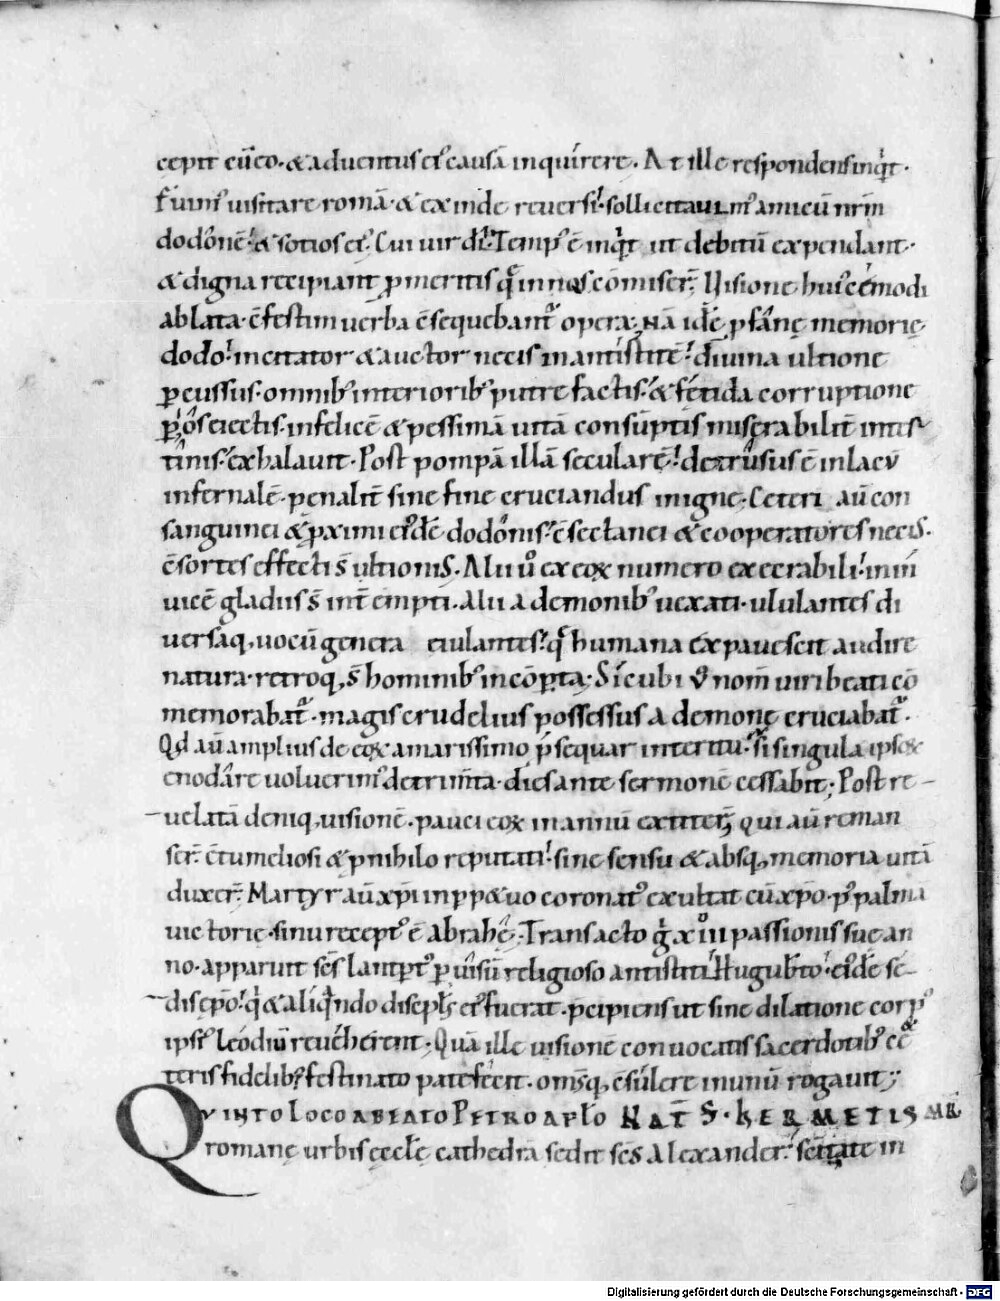 cepit cū eo · & aduentus ei᾽ causā inquirere · At ille respondens inqͥt ·
fuim᾽ uisitare romā · & exinde reuersi · sollicitauim᾽ amicū nrm̄
dodonē · & sotios ei᾽. Cui uir dī · Temp᾽ ē inqͥt ut debitū expendant ·
& digna recipiant p̄ meritis qͣ in nos cōmiser̄. Visione hui᾽cemodi
ablata · ē festim uerba cseq̄bant᾽ opera ; Nā idē pfanę memorię
dodo · incitator & auctor necis in antistitē · diuina ultione
percussus · omnib᾽ interiorib᾽ putrefactis · & fetida corruptione
p os eiectis · infelicē & pessimā uitā consūptis miserabilit̄ intes
tinis · exhalauit · Post pompā illā secularē · detrusus ē in lacū
infernalē · penalit̄ sine fine cruciandus in igne ; Ceteri aū con
sanguinei & pximi ei᾽dē dodonis · csectanei & cooperatores necis ·
csortes effecti s̄ ultionis · Alii ū ex eoꝝ numero execrabili · in inī
uicē gladiis s̄ intempti · Alii a demonib᾽ uexati · ululantes di
uersaq, uocū genera eiulantes · qͣ humana expauescit audire
natura · retroq, s̄ hominib᾽ incōpta · Sicubi ū nom̄ uiri beati cō
memorabat᾽ · magis crudelius possessus a demone cruciabat᾽ ·
Qd aū amplius de eoꝝ amarissimo psequar interitu · si singula ipsoꝝ
enodare uoluerim᾽ detrimta · dies ante sermonē cessabit ; Post re
uelatā deniq, uisionē · pauci eoꝝ in annū extiter̄ qui aū reman
ser̄ ctumeliosi & p nihilo reputati · sine sensu & absq, memoria uitā
duxer̄. Martyr aū xpi in ppetuo coronat᾽ exultat cū xpo · p᾽ palmā
uictorię · sinu recept᾽ ē abrahę · Transacto gͥ x iiii passionis sue an
no · apparuit scs̄ lantpt᾽ p uisū religioso antistiti Hugubto · ei᾽dē se
dis epo · qͥ & aliqndo discipls ei᾽ fuerat · pcipiens ut sine dilatione corp᾽
ipsi᾽ leodiū reueherent · Quā ille uisionē conuocatis sacerdotib᾽ & cę
teris fidelib᾽ festinato patefecit · omsq, csulere in unū rogauit ;
QVINTO LOCO A BEATO PETRO APLO NAT S · HERMETIS MR
romanę urbis ęcclę cathedrā sedit scs̄ Alexander · scitate in
Digitalisierung gefördert durch die Deutsche Forschungsgemeinschaft - DFG